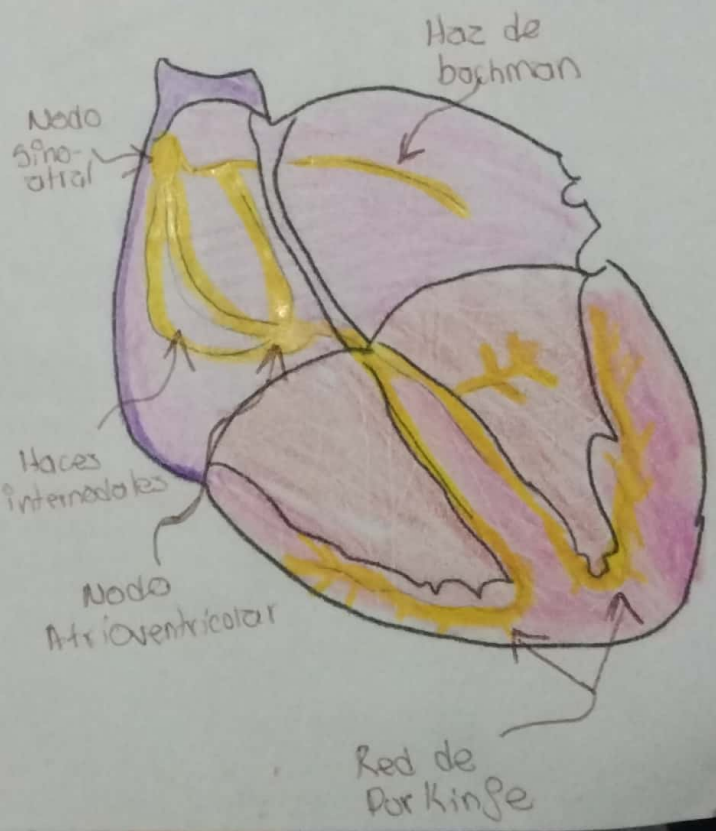 Haz de
bachman
Nodo
Sino-
atrial
Haces
internodales
Nodo
Atrioventricolar
Red de
Purkinge